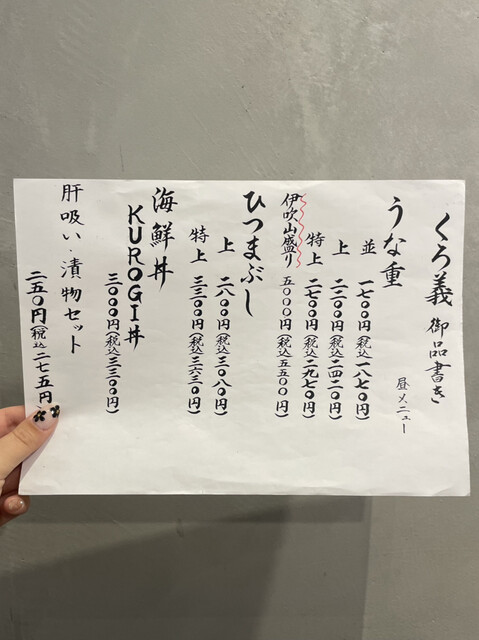 くろ義 御品書き
昼メニュー
うな重
並 一七〇〇円(税込一八七〇円)
上 二二〇〇円(税込二四二〇円)
特上 二七〇〇円(税込二九七〇円)
伊吹山盛り 五〇〇〇円(税込五五〇〇円)
ひつまぶし
上 二八〇〇円(税込三〇八〇円)
特上 三三〇〇円(税込三六三〇円)
海鮮丼
KUROGI丼
三〇〇〇円(税込三三〇〇円)
肝吸い・漬物セット
二五〇円(税込二七五円)